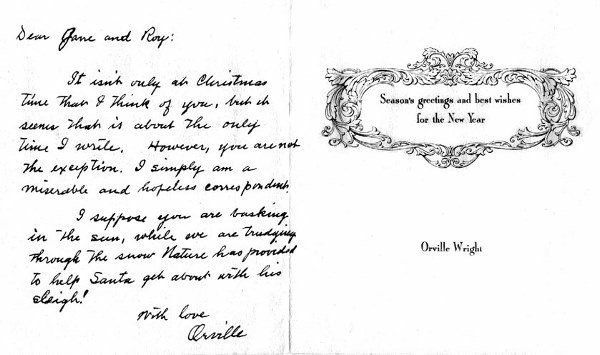 Dear Jane and Roy:
It isn't only at Christmas
time that I think of you, but it
seems that is about the only
time I write. However, you are not
the exception. I simply am a
miserable and hopeless correspondent.
I suppose you are basking
in the sun, while we are trudging
through the snow Nature has provided
to help Santa get about with his
sleigh!
With love
Orville
Season's greetings and best wishes
for the New Year
Orville Wright